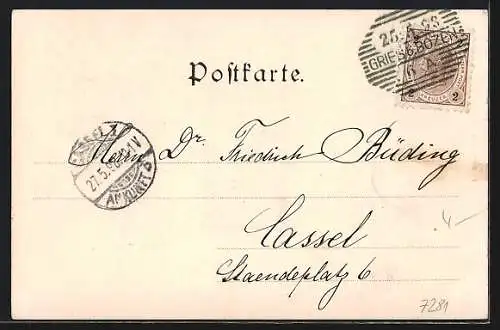 25.5.98
GRIES B. BOZEN
2 KREUZER 2
Postkarte.
CASSEL 1
27.5.98
ANKUNFT
Herrn Dr. Friedrich Büding
Cassel
Staendeplatz 6
4-
7281